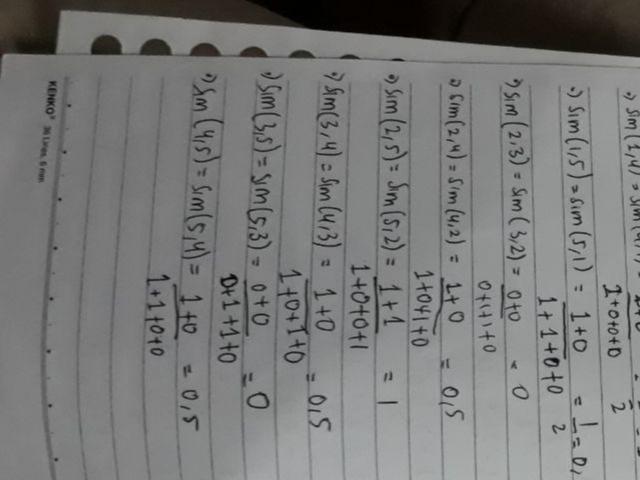 •) sim(1,4) = sim(4,1)
1+0+0+0
2
•) sim(1,5) = sim(5,1) = 1+0 = 1 = 0,
1+1+0+0 2
•) sim(2,3) = sim(3,2) = 0+0 = 0
0+1+1+0
•) sim(2,4) = sim(4,2) = 1+0 = 0,5
1+0+1+0
•) sim(2,5) = sim(5,2) = 1+1 = 1
1+0+0+1
•) sim(3,4) = sim(4,3) = 1+0 = 0,5
1+0+1+0
•) sim(3,5) = sim(5,3) = 0+0 = 0
0+1+1+0
•) sim(4,5) = sim(5,4) = 1+0 = 0,5
1+1+0+0
KENKO® 36 Lines, 6 mm